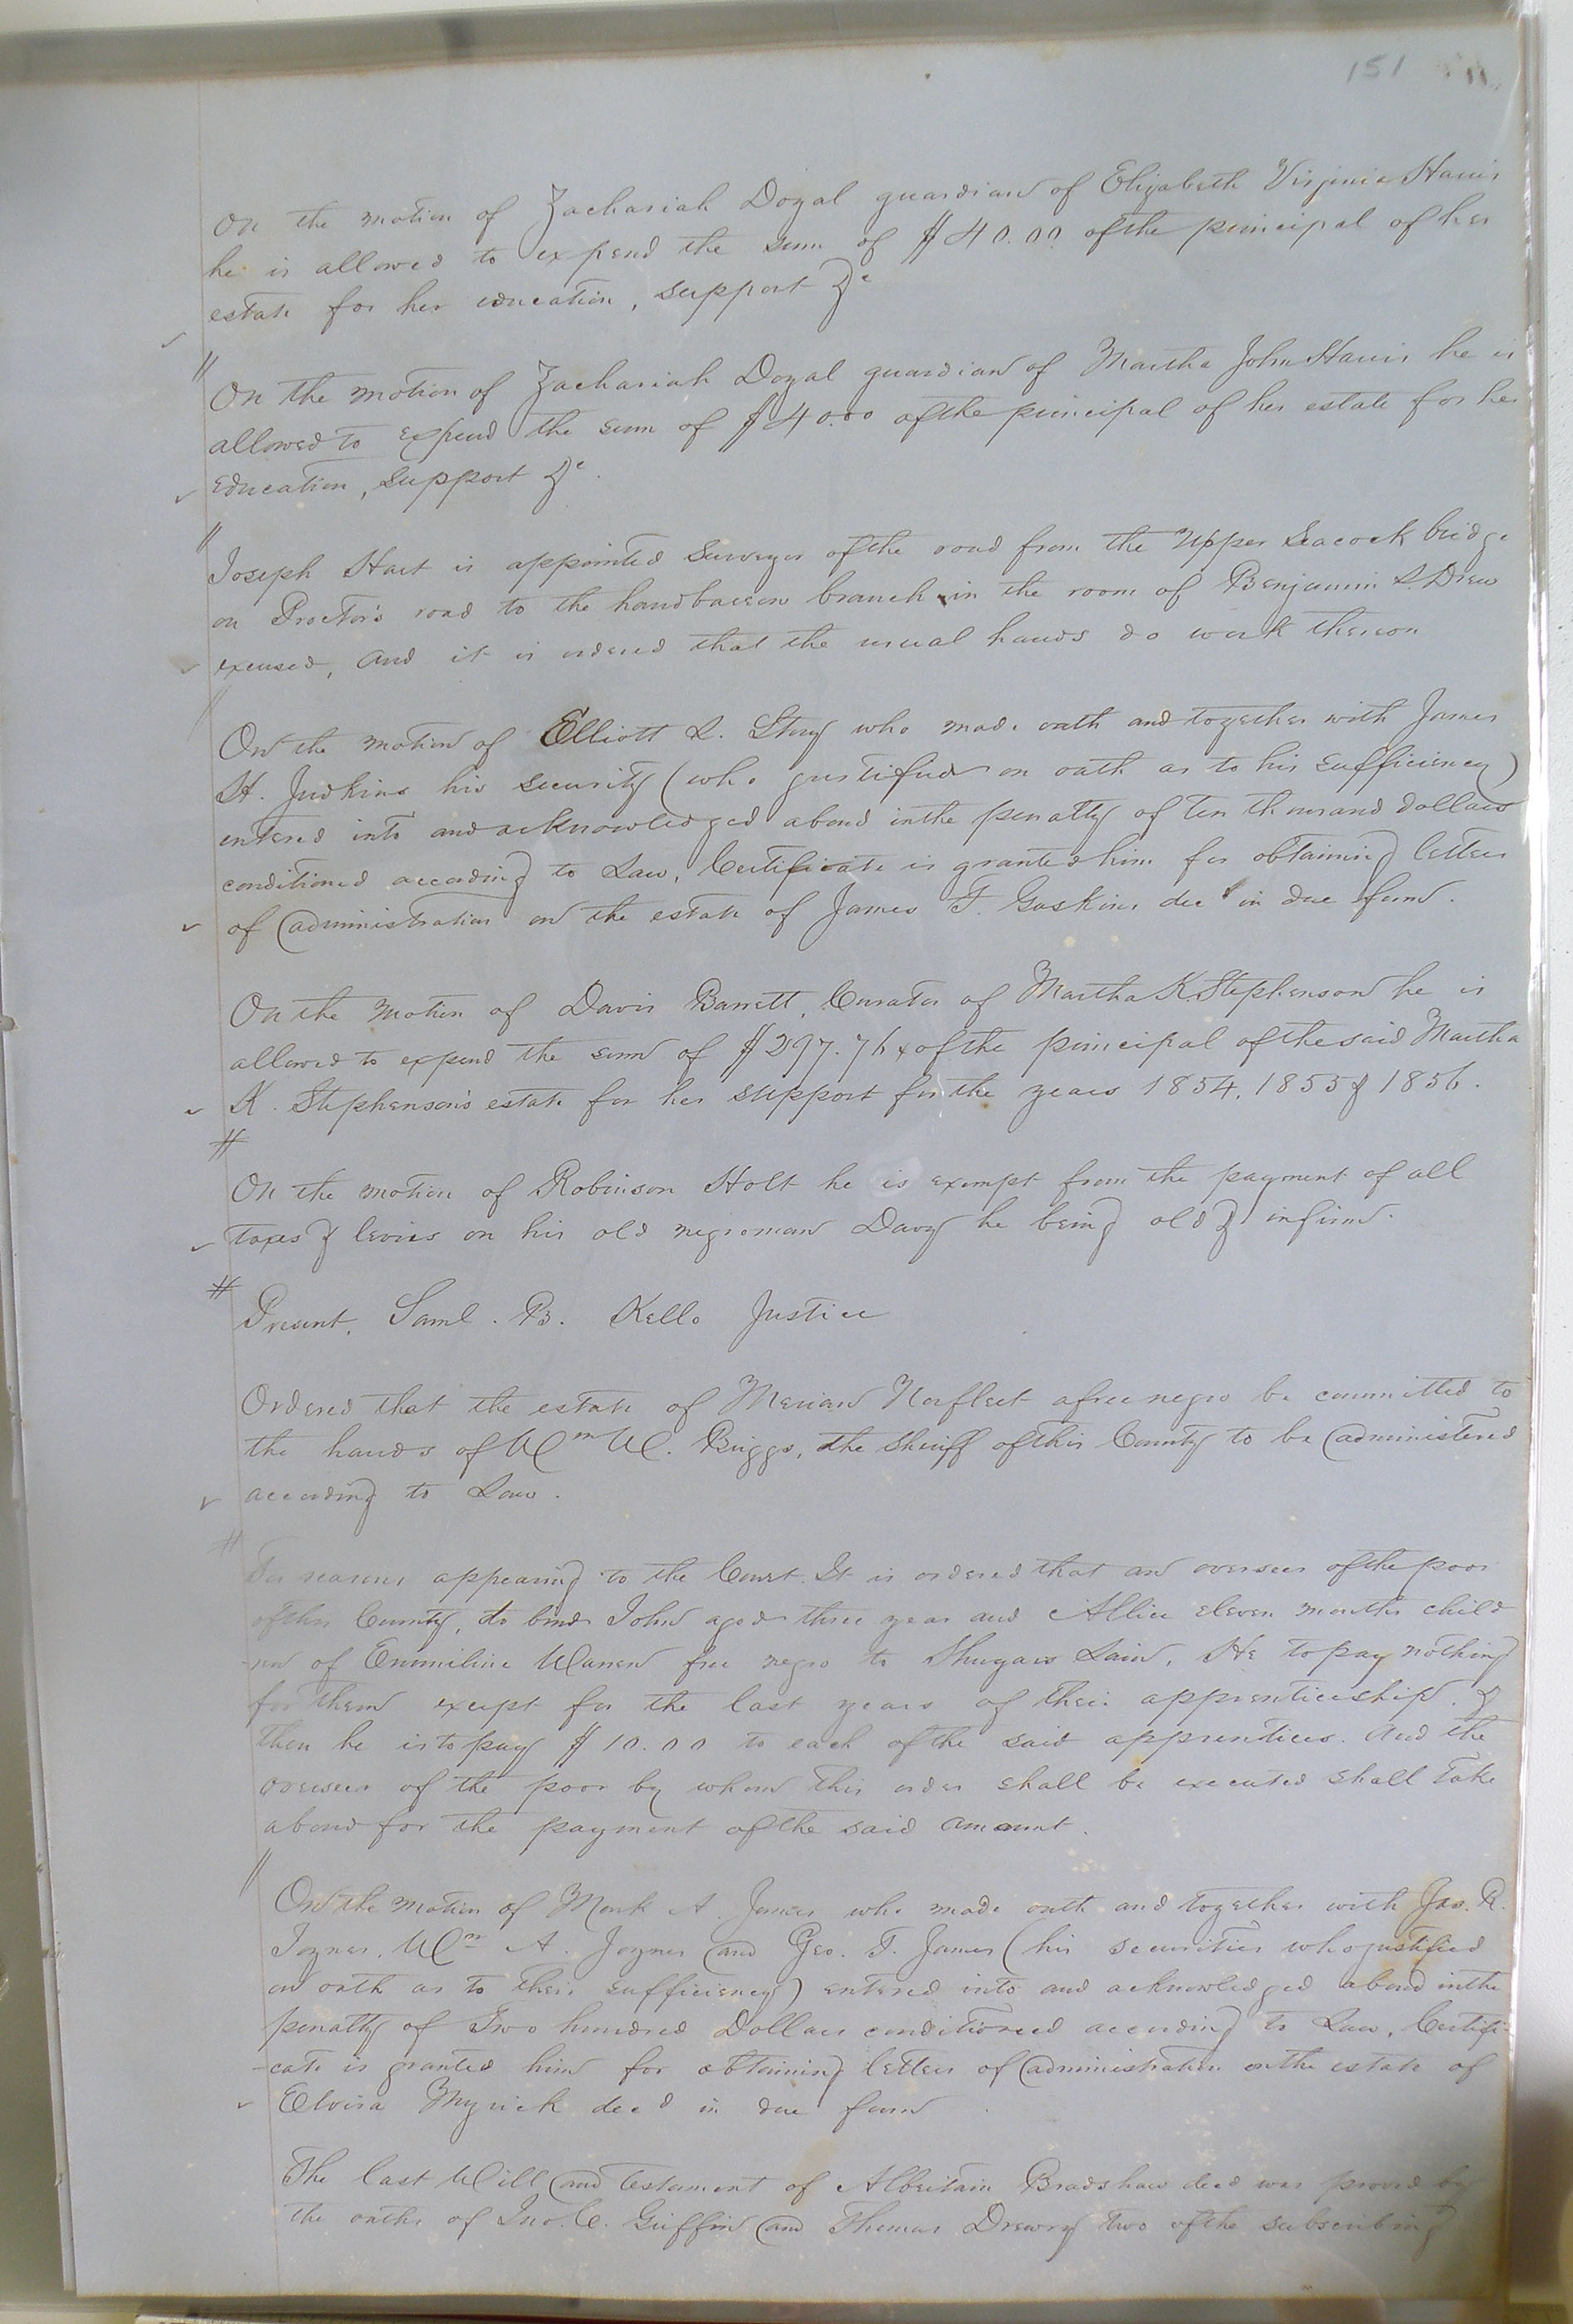 151
On the motion of Zachariah Doyal guardian of Elizabeth Virginia Harris
he is allowed to expend the sum of $40.00 of the principal of her
estate for her education, support &c
On the motion of Zachariah Doyal guardian of Martha John Harris he is
allowed to expend the sum of $40.00 of the principal of her estate for her
education, support &c.
Joseph Hart is appointed Surveyor of the road from the Upper Seacock bridge
on Proctor's road to the branch in the room of Benjamin S. Drew
excused, and it is ordered that the usual hands do work thereon
On the motion of Elliott L. Story who made oath and together with James
H. Judkins his security (who justified on oath as to his sufficiency)
entered into and acknowledged a bond in the penalty of ten thousand dollars
conditioned according to Law, Certificate is granted him for obtaining letters
of administration on the estate of James T. Gaskins decd in due form.
On the motion of Davis Barrett, Curator of Martha K Stephenson he is
allowed to expend the sum of $297.76 of the principal of the said Martha
K. Stephenson's estate for her support for the years 1854, 1855 & 1856.
On the motion of Robinson Holt he is exempt from the payment of all
taxes & levies on his old negro man Davy he being old & infirm.
Present, Saml. B. Kello Justice
Ordered that the estate of Norfleet a free negro be committed to
the hands of Wm W. Briggs, the Sheriff of this County to be administered
according to Law.
For reasons appearing to the Court. It is ordered that an overseer of the poor
of this County, do bind John aged three year and Allice eleven months child
-ren of Emmeline Warren free negro to Shugars Lain, He to pay nothing
for them except for the last years of their apprenticeship. &
then he is to pay $10.00 to each of the said apprentices. And the
overseer of the poor by whom this order shall be executed shall take
a bond for the payment of the said amount.
On the motion of Monk A. James who made oath and together with Jas. R.
Joyner, Wm A. Joyner and Geo. T. James (his securities who justified
on oath as to their sufficiency) entered into and acknowledged a bond in the
penalty of Two hundred Dollars conditioned according to Law, Certifi-
-cate is granted him for obtaining letters of administration on the estate of
Elvira Myrick decd in due form.
The last Will and testament of Albritain Bradshaw decd was proved by
the oaths of Jno. C. Griffin and Thomas Drewry two of the subscribing